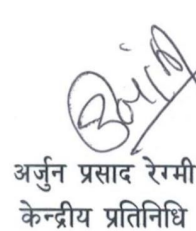 अर्जुन प्रसाद रेग्मी
केन्द्रीय प्रतिनिधि